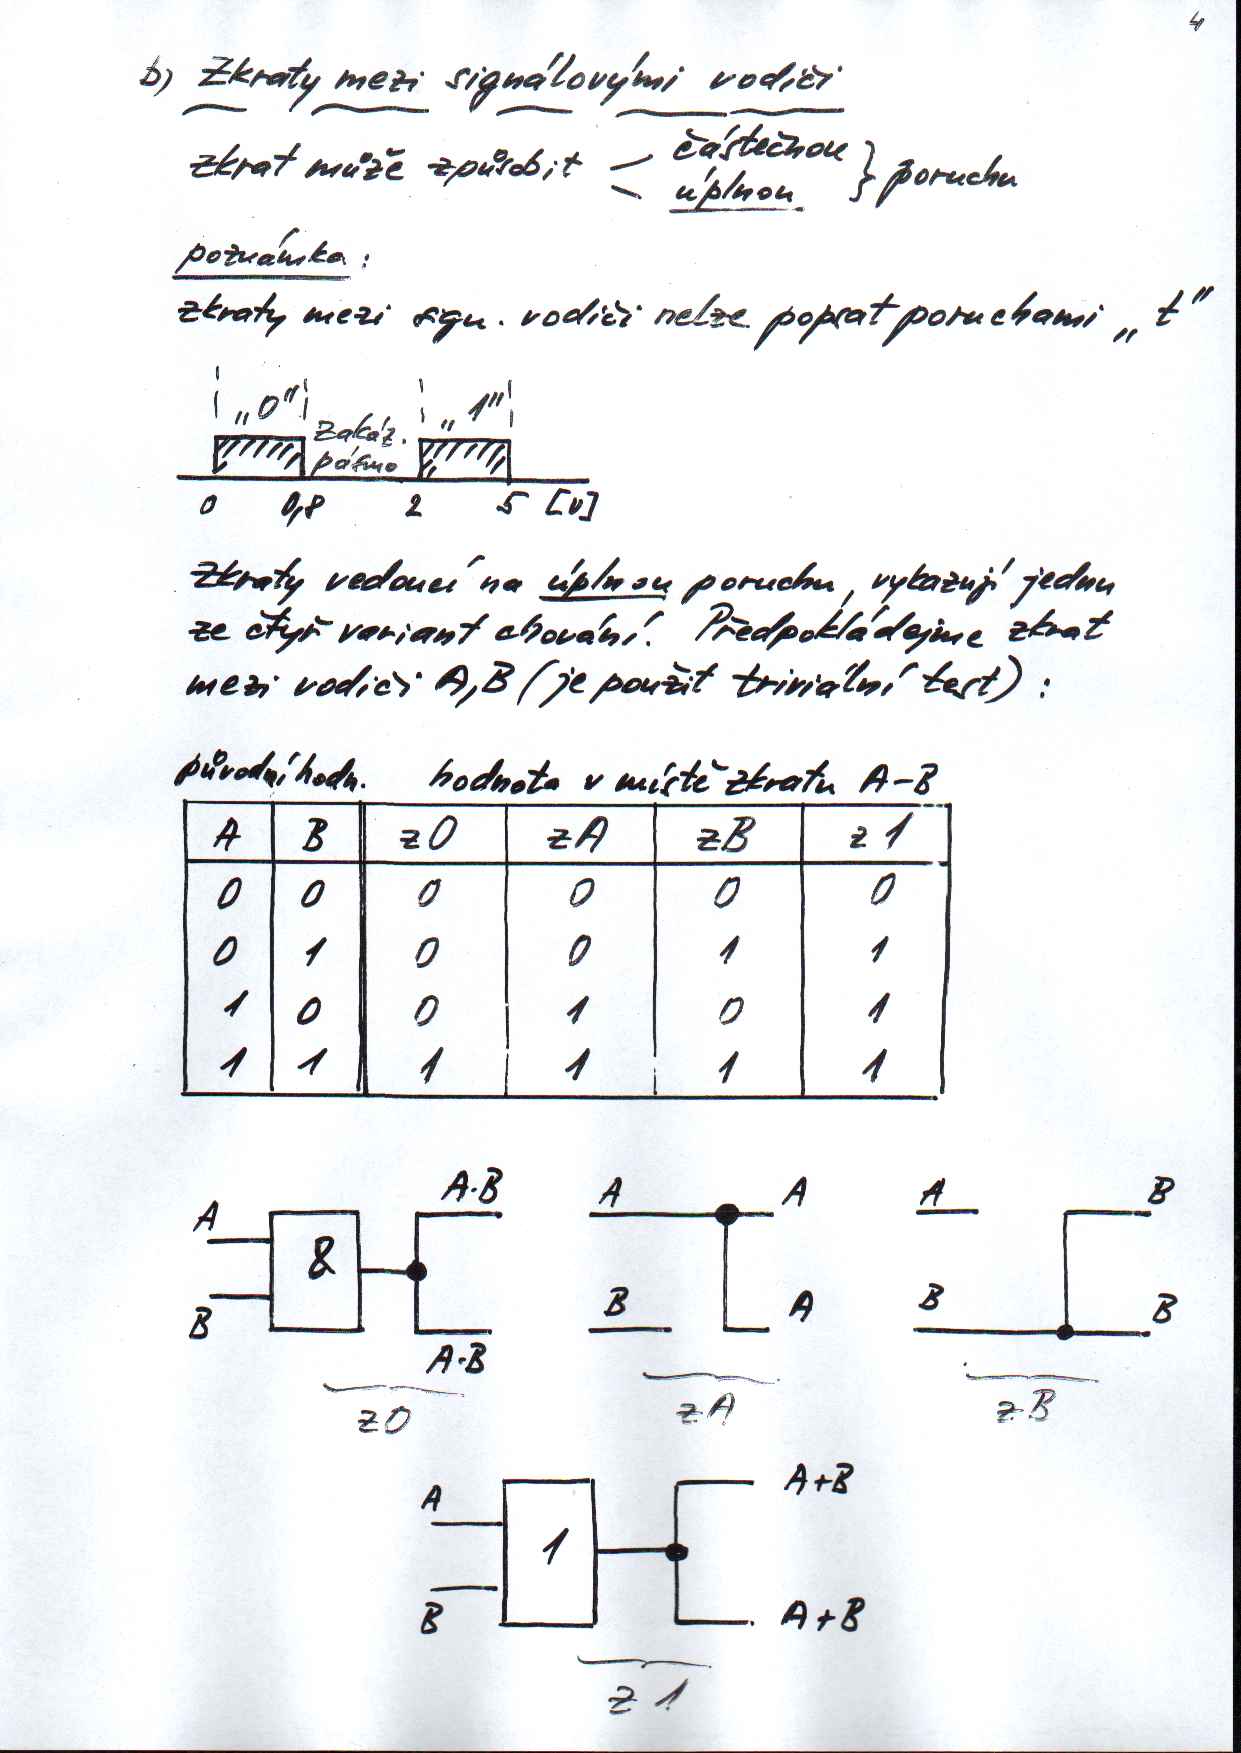 4
b) Zkraty mezi signálovými vodiči
zkrat může způsobit částečnou úplnou } poruchu
poznámka:
zkraty mezi sign. vodiči nelze popsat poruchami „t"
„0" zakáz. pásmo „1"
0 0,8 2 5 [V]
Zkraty vedoucí na úplnou poruchu, vykazují jednu
ze čtyř variant chování. Předpokládejme zkrat
mezi vodiči A,B (je použit triviální test):
původní hodn. hodnota v místě zkratu A-B
A B z0 zA zB z1
0 0 0 0 0 0
0 1 0 0 1 1
1 0 0 1 0 1
1 1 1 1 1 1
A B & A·B A·B
z0
A B A A
zA
A B B B
zB
A B 1 A+B A+B
z1